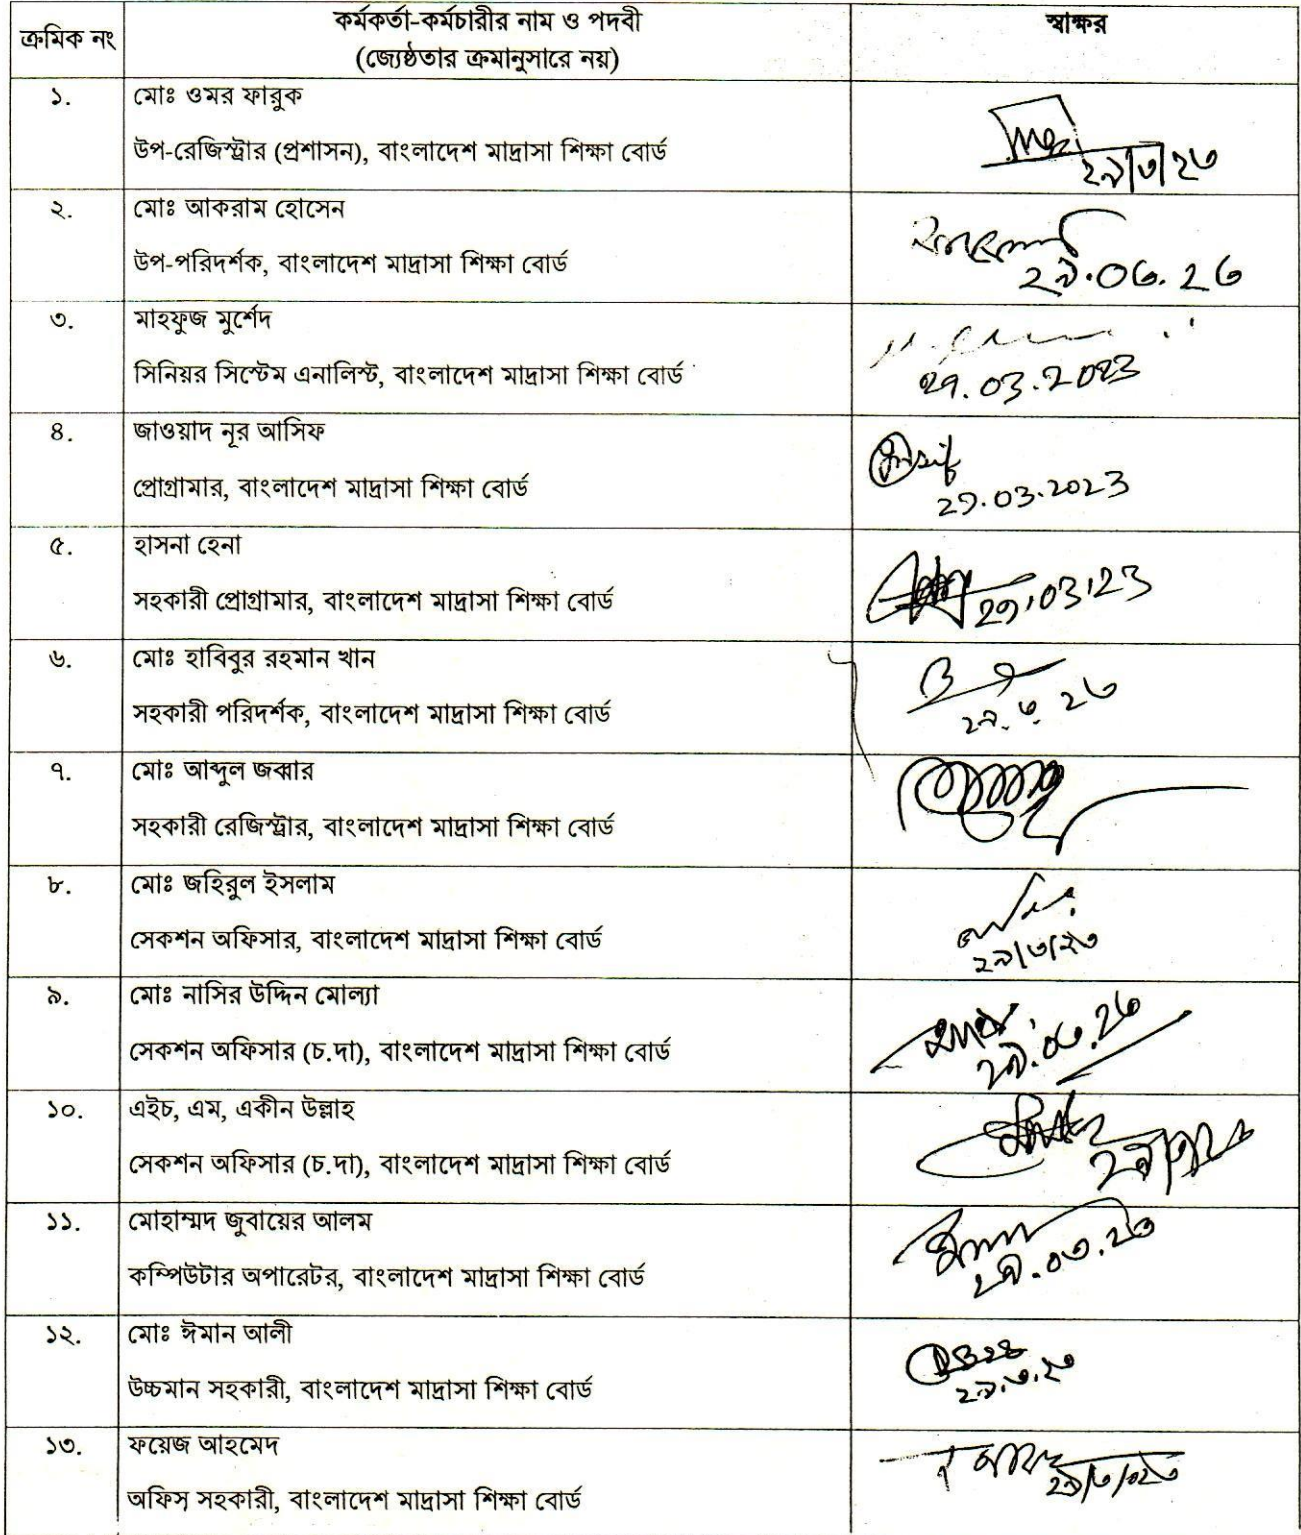 ক্রমিক নং
কর্মকর্তা-কর্মচারীর নাম ও পদবী
(জ্যেষ্ঠতার ক্রমানুসারে নয়)
স্বাক্ষর
১.
মোঃ ওমর ফারুক
উপ-রেজিস্ট্রার (প্রশাসন), বাংলাদেশ মাদ্রাসা শিক্ষা বোর্ড
২৯/৩/২৩
২.
মোঃ আকরাম হোসেন
উপ-পরিদর্শক, বাংলাদেশ মাদ্রাসা শিক্ষা বোর্ড
২৯.০৩.২৩
৩.
মাহফুজ মুর্শেদ
সিনিয়র সিস্টেম এনালিস্ট, বাংলাদেশ মাদ্রাসা শিক্ষা বোর্ড
29.03.2023
৪.
জাওয়াদ নূর আসিফ
প্রোগ্রামার, বাংলাদেশ মাদ্রাসা শিক্ষা বোর্ড
29.03.2023
৫.
হাসনা হেনা
সহকারী প্রোগ্রামার, বাংলাদেশ মাদ্রাসা শিক্ষা বোর্ড
29.03.23
৬.
মোঃ হাবিবুর রহমান খান
সহকারী পরিদর্শক, বাংলাদেশ মাদ্রাসা শিক্ষা বোর্ড
২৯.৩.২৩
৭.
মোঃ আব্দুল জব্বার
সহকারী রেজিস্ট্রার, বাংলাদেশ মাদ্রাসা শিক্ষা বোর্ড
৮.
মোঃ জহিরুল ইসলাম
সেকশন অফিসার, বাংলাদেশ মাদ্রাসা শিক্ষা বোর্ড
২৯/৩/২৩
৯.
মোঃ নাসির উদ্দিন মোল্যা
সেকশন অফিসার (চ.দা), বাংলাদেশ মাদ্রাসা শিক্ষা বোর্ড
২৯.০৩.২৩
১০.
এইচ, এম, একীন উল্লাহ
সেকশন অফিসার (চ.দা), বাংলাদেশ মাদ্রাসা শিক্ষা বোর্ড
১১.
মোহাম্মদ জুবায়ের আলম
কম্পিউটার অপারেটর, বাংলাদেশ মাদ্রাসা শিক্ষা বোর্ড
২৯.০৩.২৩
১২.
মোঃ ঈমান আলী
উচ্চমান সহকারী, বাংলাদেশ মাদ্রাসা শিক্ষা বোর্ড
২৯.৩.২৩
১৩.
ফয়েজ আহমেদ
অফিস সহকারী, বাংলাদেশ মাদ্রাসা শিক্ষা বোর্ড
২৯/৩/২০২৩